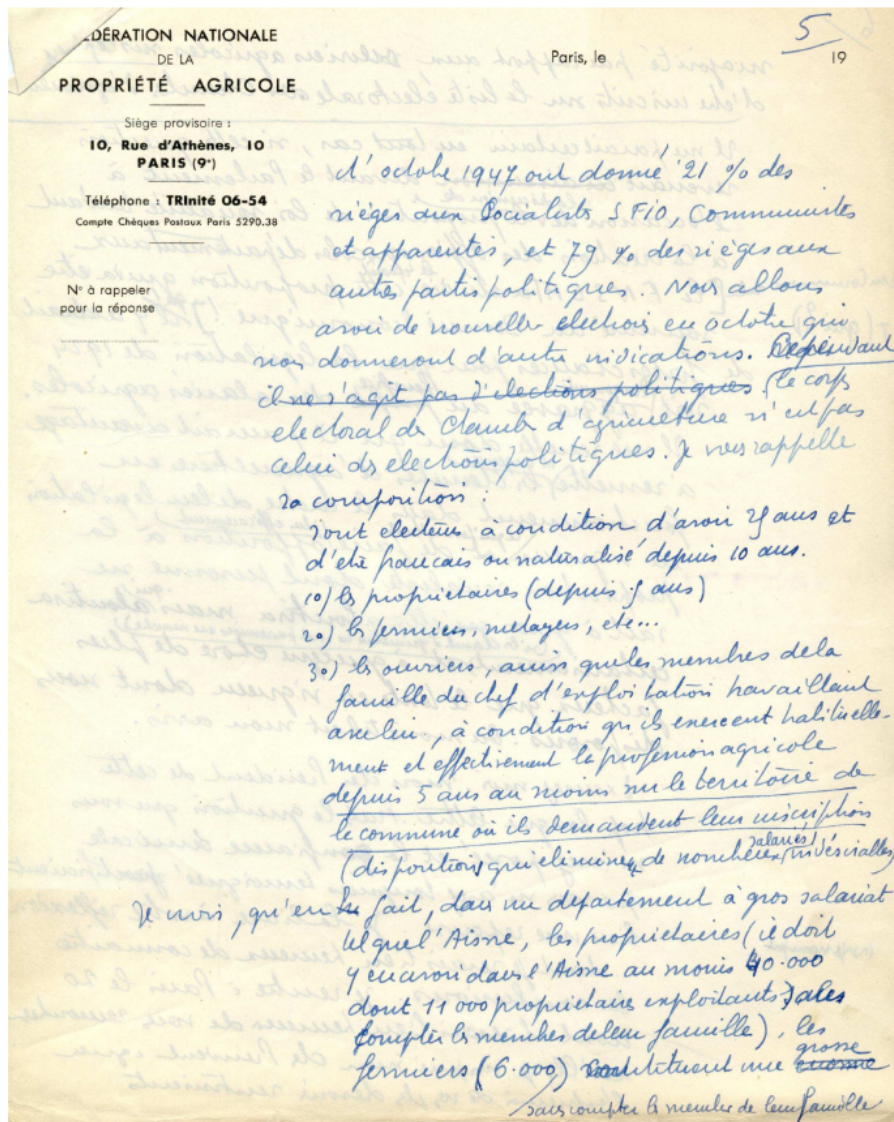 FÉDÉRATION NATIONALE
DE LA
PROPRIÉTÉ AGRICOLE
Siège provisoire :
10, Rue d'Athènes, 10
PARIS (9e)
Téléphone : TRInité 06-54
Compte Chèques Postaux Paris 5290.38
N° à rappeler
pour la réponse
Paris, le 19
5
d'octobre 1947 ont donné 21 % des
sièges aux Socialistes SFIO, Communistes
et apparentés, et 79 % des sièges aux
autres partis politiques. Nous allons
avoir de nouvelles elections en octobre qui
nous donneront d'autres indications. Cependant
il ne s'agit pas d'elections politiques le corps
electoral des Chambres d'agriculture n'est pas
celui des elections politiques. Je vous rappelle
sa composition :
sont electeurs à condition d'avoir 25 ans et
d'etre francais ou naturalisé depuis 10 ans.
1o) les proprietaires (depuis 5 ans)
2o) les fermiers, metayers, etc...
3o) les ouvriers, ainsi que les membres de la
famille du chef d'exploitation travaillant
avec lui, à condition qu'ils exercent habituelle-
ment et effectivement la profession agricole
depuis 5 ans au moins sur le territoire de
la commune où ils demandent leur inscription
(dispositions qui elimine de nombreux salariés,
Je crois, qu'en fait, dans un departement à gros salariat
tel que l'Aisne, les proprietaires (il doit
y en avoir dans l'Aisne au moins 40.000
dont 11 000 proprietaires exploitants sans
compter les membres de leur famille), les
fermiers (6.000) constituent une enorme grosse
sans compter les membres de leur famille